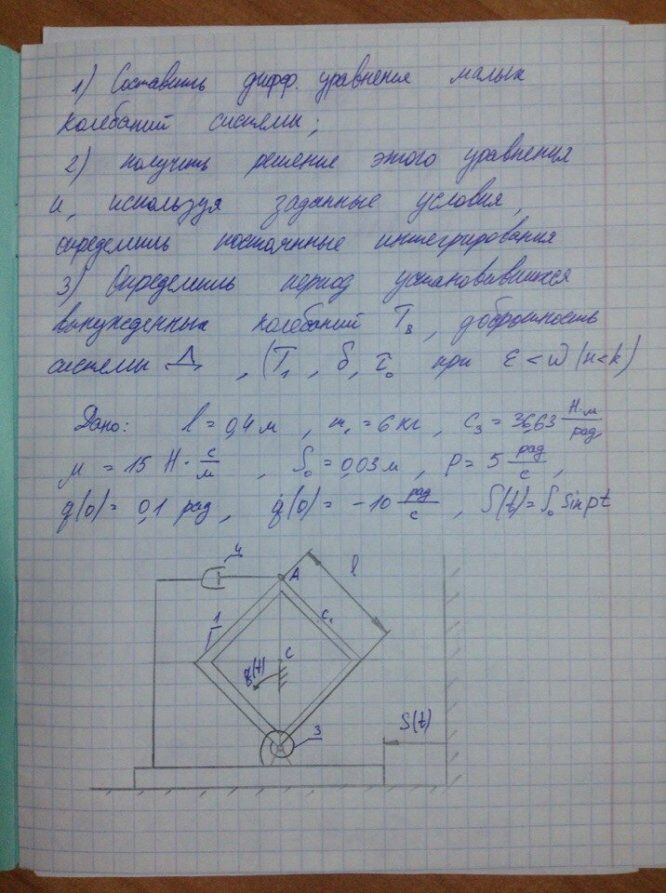 1) Составить дифф. уравнения малых
колебаний системы;
2) получить решение этого уравнения
и, используя заданные условия,
определить постоянные интегрирования
3) Определить период установившихся
вынужденных колебаний Tв, добротность
системы Д, (T1, δ, τ0 при ε < ω (n<k)
Дано: l = 0,4 м, m1 = 6 кг, c3 = 36,63 Н·м/рад
μ = 15 Н·с/м, S0 = 0,03 м, p = 5 рад/с,
q(0) = 0,1 рад, q̇(0) = -10 рад/с, S(t) = S0 sin pt
4
A
l
1
c1
C
q(t)
3
S(t)